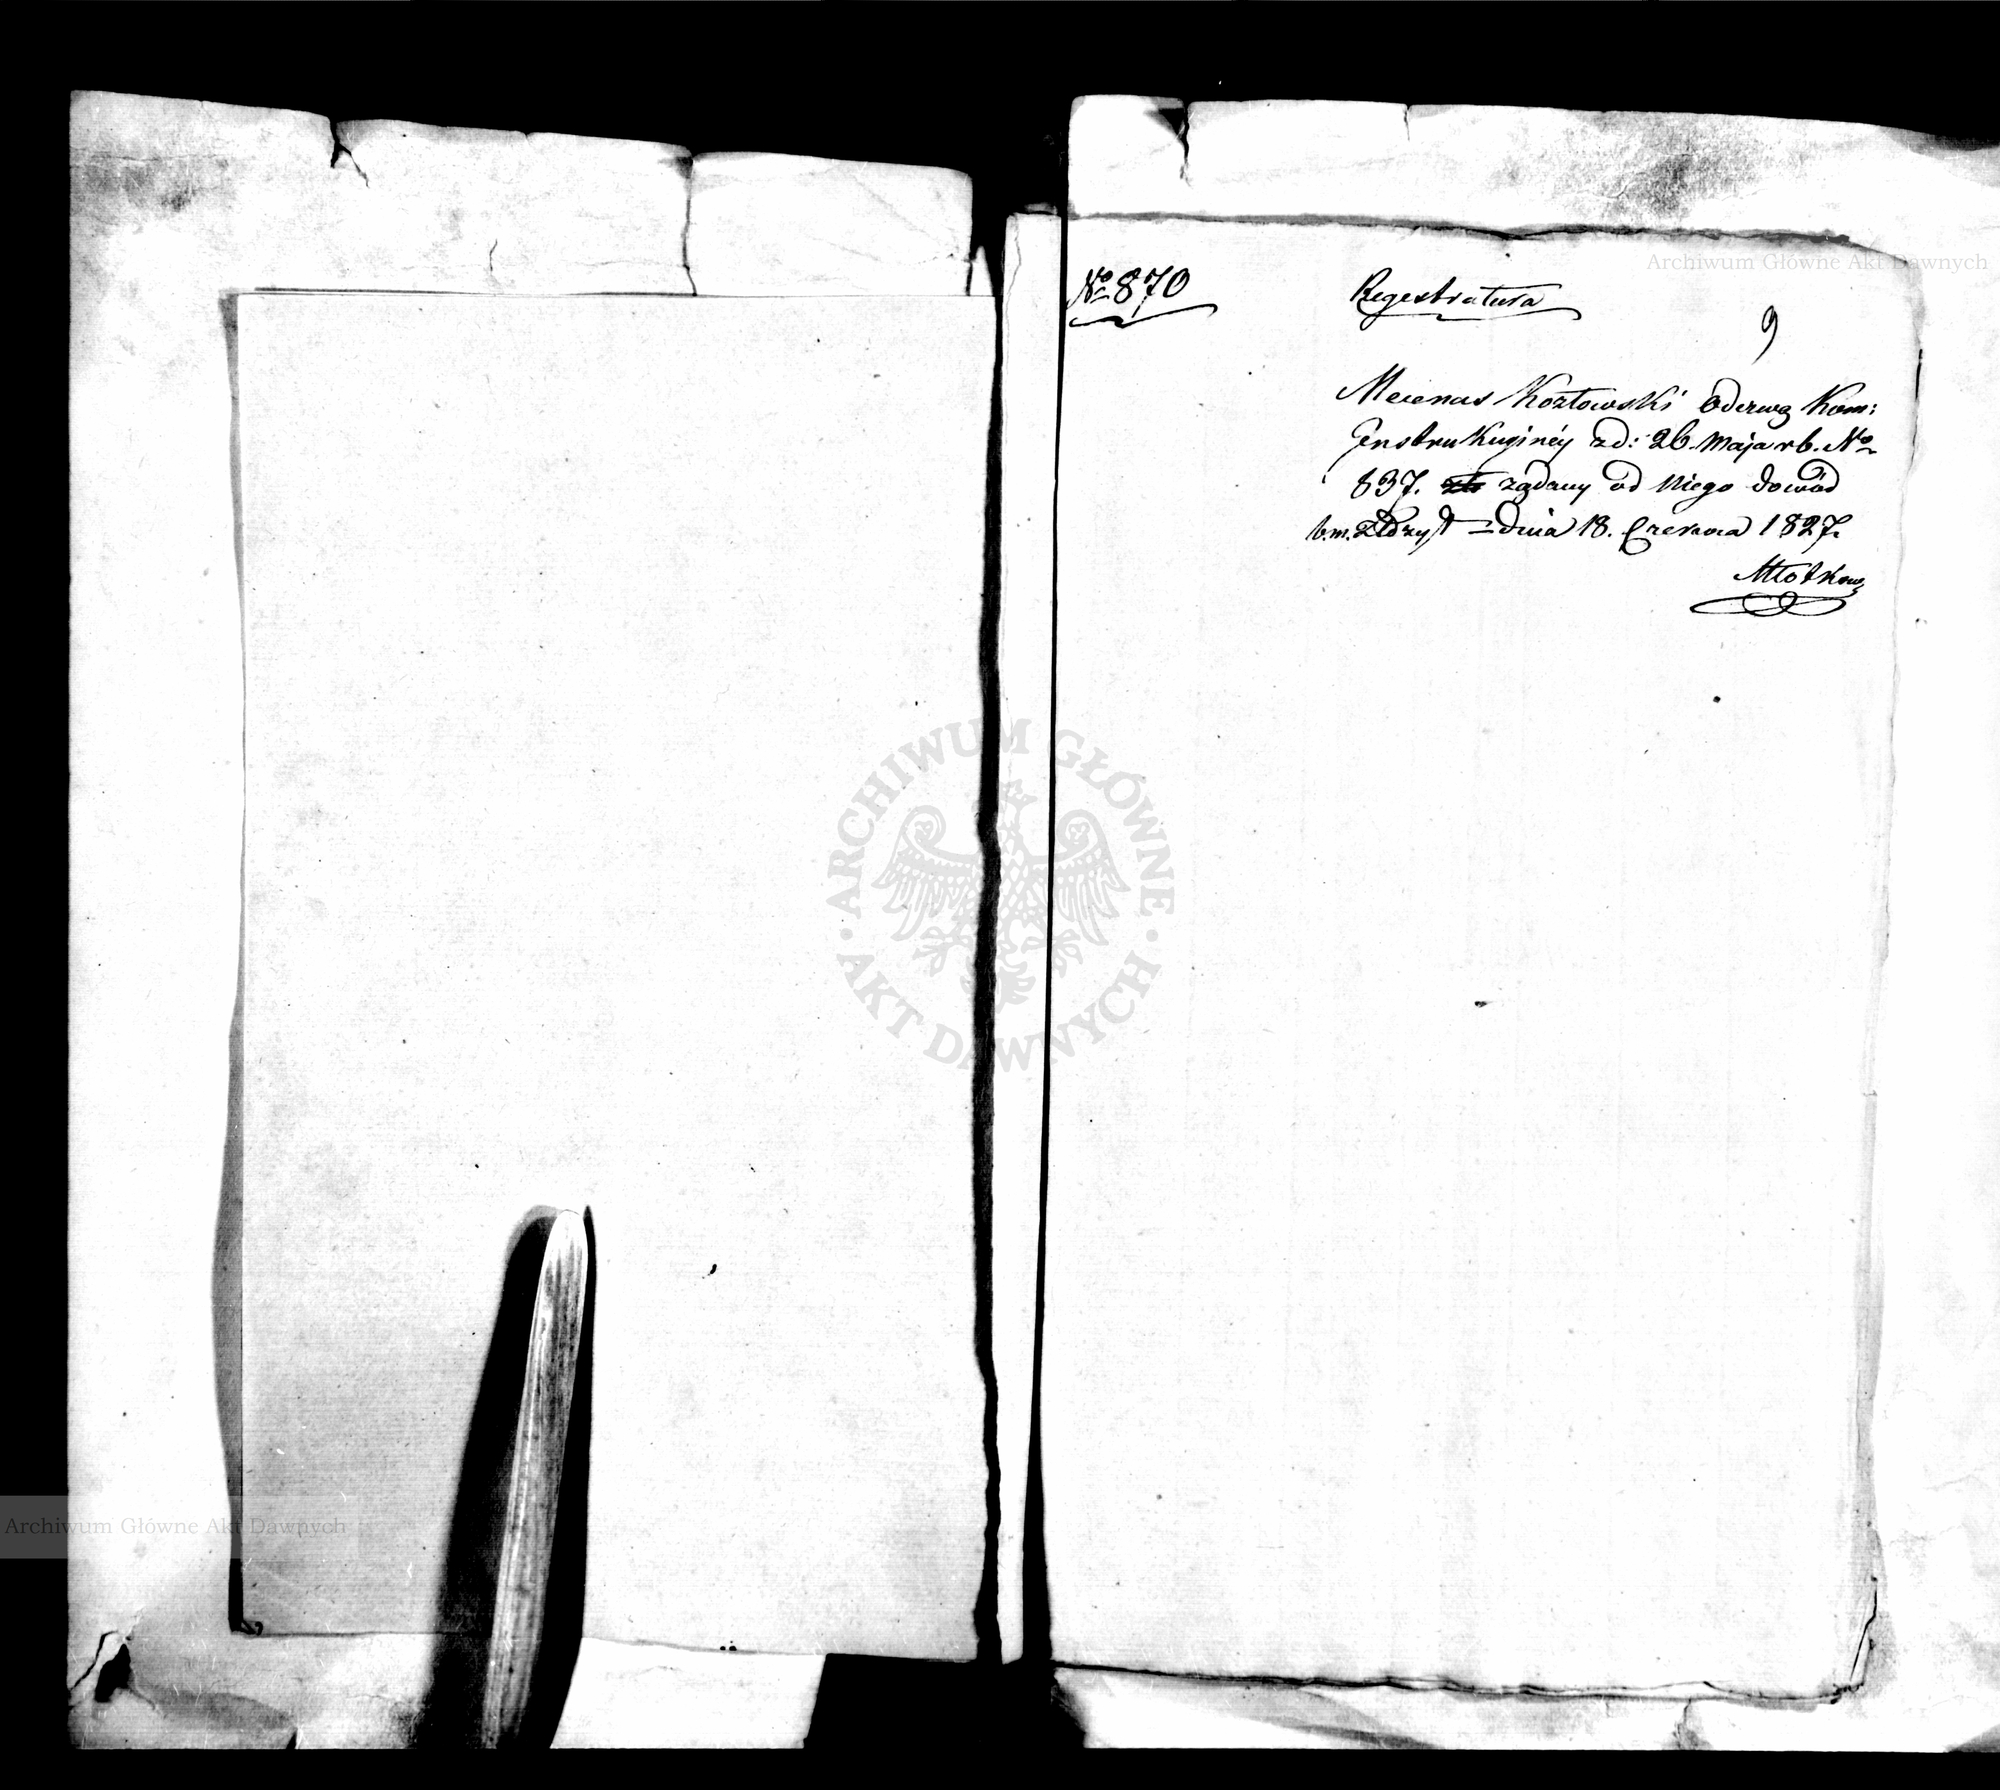 Nº 870
Regestratura
9
Mecenas Kozłowski odezwą Kom:
Instrukcyinéy zd: 26. Maja rb. Nº
837. żądany od niego dowód
b.m. dnia 18. Czerwca 1827.
Archiwum Główne Akt Dawnych
ARCHIWUM GŁÓWNE
AKT DAWNYCH
Archiwum Główne Akt Dawnych